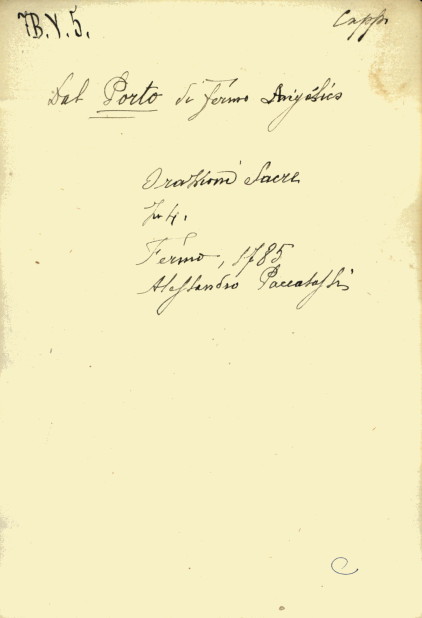 7B.Y.5.
Capp.
Dal Porto di Fermo Angelico
Orazioni Sacre
In 4.
Fermo, 1785
Alessandro Paccasassi
C